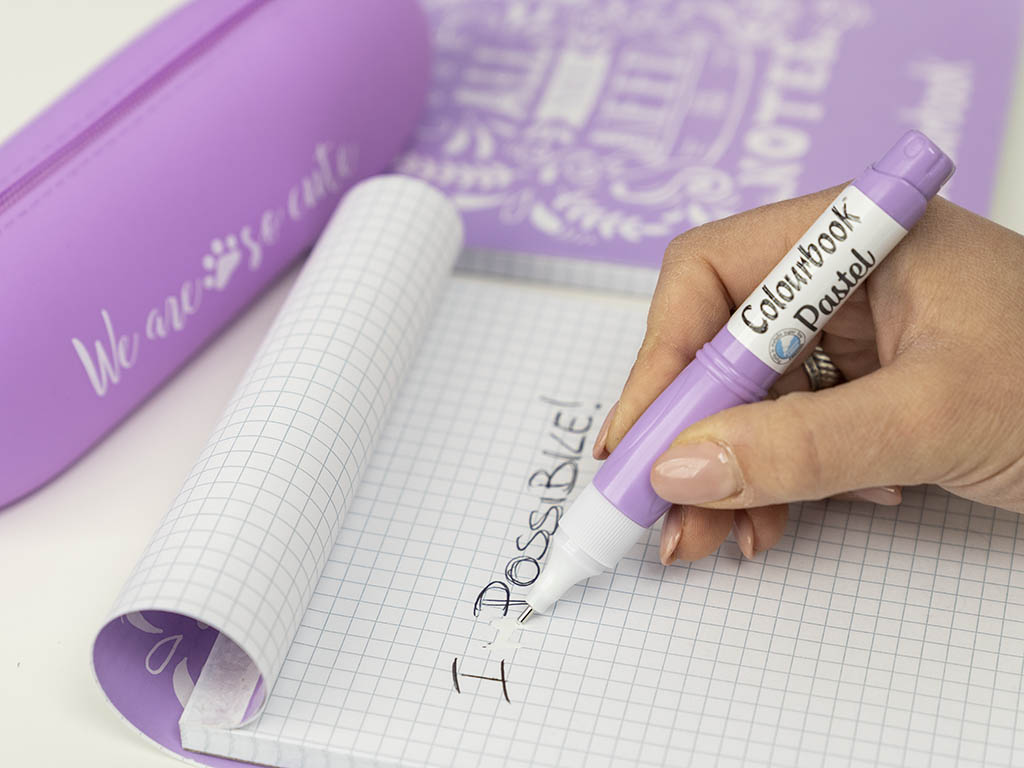 We are so cute
ALL
NOTES
Colourbook
Pastel
I POSSIBLE!